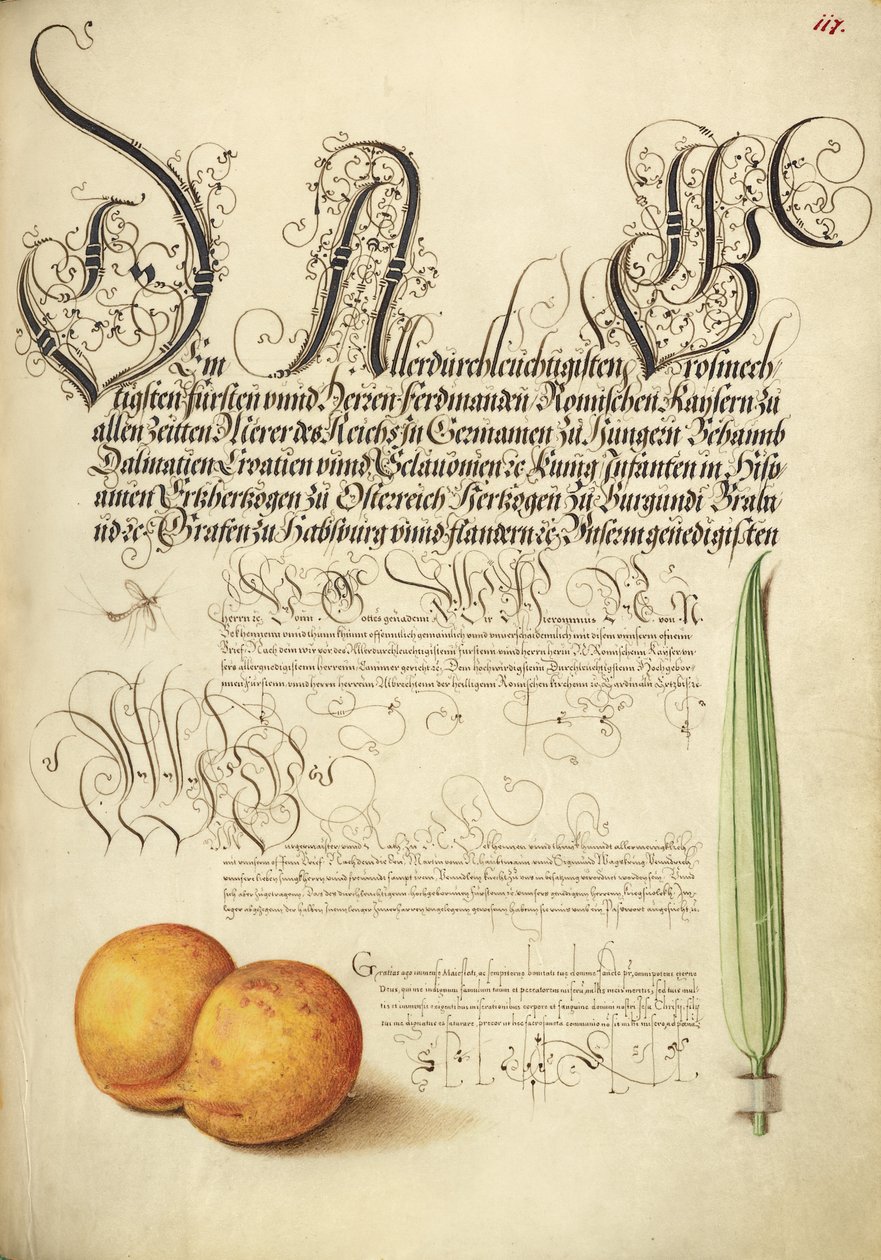 117.
Dem Allerdurchleuchtigisten Grosmech/
tigisten fürsten vnnd Herren Ferdinanden Romischen Kaysern zu
allen Zeitten Merer des Reichs In Germanien zu Hungern Behaimb
Dalmatien Croatien vnnd Sclauonien ꝛc Kunig Infanten in Hisp/
anien Ertzhertzogen zu Osterreich Hertzogen zu Burgundi Braba
nd ꝛc Grafen zu Habspurg vnnd flandern ꝛc Vnserm genedigisten
herrn ꝛc Vonn Gottes genaden Wir Hieronimus N. E. von N.
Bekhennen vnnd thun khunt offennlich gemainlich vnnd vnuerschaidennlich mit disem vnnserm offenn
Brief, Nach dem wir vor des Allerdurchleuchtigisten fürsten vnnd herrn herrn N Romischen Kayser vn
sers allergnedigisten herren, Cammergericht ꝛc, Dem Hochwirdigisten Durchleuchtigisten Hochgebor-
nnen fürsten, vnnd herrn herren Albrechten der heilligenn Romischen kirchenn ꝛc Cardinaln Ertzbis ꝛc
WIR Burgermaister vnnd Rath zu N. Bekhennen vnnd thun khundt allermenigklich
mit vnnserm offenn Brief, Nachdem die
vnnser lieben Junckherrn vnnd freundt sampt
sich aber zugetragenn, Das des durchleuchtigenn hochgebornnen fürsten ꝛc vnnsers genedigen herrenn kriegsuolckh
leger abgezogenn der halben
Gratias ago immensæ Maiestati, ac sempiternæ bonitati tuæ domine Sancte pr, omnipotens æterne
Deus, qui me indignum famulum tuum et peccatorem miserum, nullis meis meritis, sed tuis mul-
tis et immensis exigentibus miserationibus corpore et sanguine domini nostri Jesu Christi filij
tui me dignatus es saturare, precor ut hæc sacrosancta communio no sit mihi misero ad pœnæ